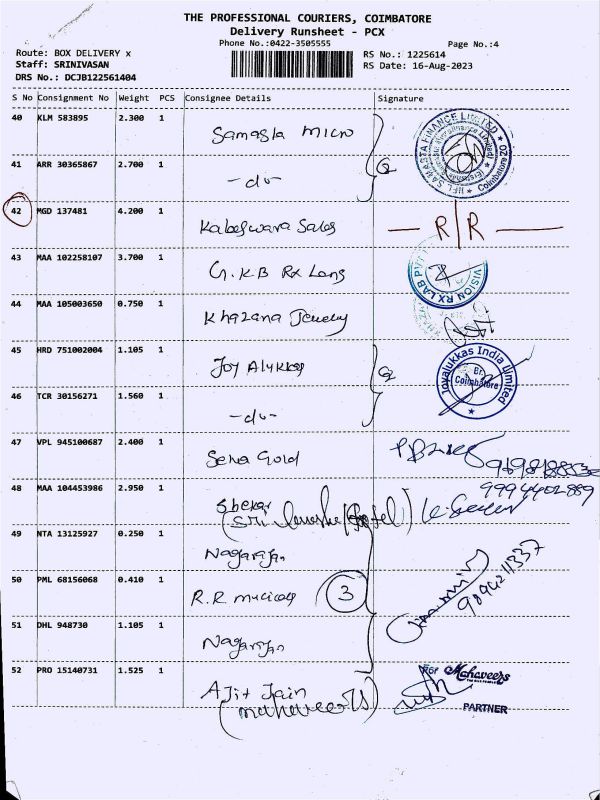 THE PROFESSIONAL COURIERS, COIMBATORE
Delivery Runsheet - PCX
Phone No.:0422-3505555
Page No.:4
Route: BOX DELIVERY x
RS No.: 1225614
Staff: SRINIVASAN
RS Date: 16-Aug-2023
DRS No.: DCJB122561404
S No Consignment No Weight PCS Consignee Details Signature
40 KLM 583895 2.300 1 Samasta Micro
IIFL SAMASTA FINANCE LIMITED Coimbatore
41 ARR 30365867 2.700 1 -do-
42 MGD 137481 4.200 1 Kabeswara Sales — R/R —
43 MAA 102258107 3.700 1 G.K.B Rx Lens
VISION RX LAB PVT
44 MAA 105003650 0.750 1 Khazana Jewelry
KHAZANA
45 HRD 751002004 1.105 1 Joy Alukkas
Joyalukkas India Limited Br. Coimbatore
46 TCR 30156271 1.560 1 -do-
47 VPL 945100687 2.400 1 Sena Gold
48 MAA 104453986 2.950 1 Shekar
9994402889
(Sri
49 NTA 13125927 0.250 1 Nagarajan
50 PML 68156068 0.410 1 R.R 3
9894211337
51 DHL 948730 1.105 1 Nagarajan
52 PRO 15140731 1.525 1 Ajit Jain
(mahaveers)
For Mahaveers
PARTNER